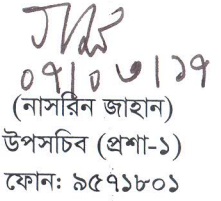 ০৭|০৩|১৭
(নাসরিন জাহান)
উপসচিব (প্রশা-১)
ফোন: ৯৫৭১৮০১